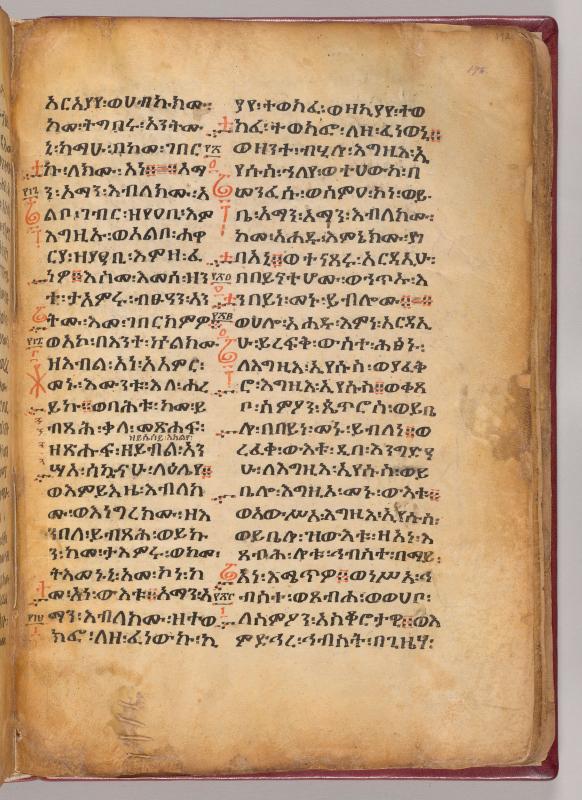 አርአያየ፡ወሀብኩክሙ፡
ከመ፡ትግበሩ፡አንትሙ
ኒ፡ከማሁ፡በከመ፡ገበር
ኩ፡ለክሙ፡አነ፨አማ
ን፡አማን፡እብለክሙ፡አ
ልቦ፡ገብር፡ዘየዐቢ፡እም
እግዚኡ፡ወአልቦ፡ሐዋ
ርያ፡ዘያዐቢ፡እምዘ፡ፈ
ነዎ፨እስመ፡እመሰ፡ዘን
ተ፡ታአምሩ፡ብፁዓን፡አን
ትሙ፡እመ፡ገበርክምዎ
ወአኮ፡በእንተ፡ኵልክሙ
ዘእብል፡አነ፡አአምር፡
መኑ፡እሙንቱ፡እለ፡ሐረ
ይኩ፨ወባሕቱ፡ከመ፡ይ
ብጻሕ፡ቃለ፡መጽሐፍ፡
ዘይሴሰይ፡እክልየ፡
ዘጽሑፍ፡ዘይብል፡አን
ሣአ፡ሰኰናሁ፡ላዕሌየ፨
ወእምይእዜ፡እብለክ
ሙ፡ወእነግረክሙ፡ዘእ
ንበለ፡ይብጻሕ፡ወይኩ
ን፡ከመ፡ታእምሩ፡ወከመ፡
ትእመኑኒ፡አመ፡ኮነ፡ከ
መ፡አነ፡ውእቱ፨አማን፡አ
ማን፡እብለክሙ፡ዘተወ
ክፎ፡ለዘ፡ፈነውኩ፡ኪ
ያየ፡ተወክፈ፡ወዘኪያየ፡ተወ
ክፈ፡ተወክፎ፡ለዘ፡ፈነወኒ፨
ወዘንተ፡ብሂሎ፡እግዚእ፡ኢ
የሱስ፡ኀለየ፡ወተሀውከ፡በ
መንፈሱ፡ወስምዐ፡ኮነ፡ወይ
ቤ፡አማን፡አማን፡እብለክሙ፡
ከመ፡አሐዱ፡እምኔክሙ፡ያገ
ብአኒ፨ወተናጸሩ፡አርዳኢሁ፡
በበይናቲሆሙ፡ወኀጥኡ፡እ
ንበይነ፡መኑ፡ይብሎሙ፨
ወሀሎ፡አሐዱ፡እምነ፡አርዳኢ
ሁ፡ይረፍቅ፡ውስተ፡ሕፅኑ፡
ለእግዚእ፡ኢየሱስ፡ወያፈቅ
ሮ፡እግዚእ፡ኢየሱስ፨ወቀጸ
ቦ፡ስምዖን፡ጴጥሮስ፡ወይቤ
ሎ፡በበይነ፡መኑ፡ይብለነ፨ወ
ረፈቀ፡ውእቱ፡ዲበ፡እንግድዓ
ሁ፡ለእግዚእ፡ኢየሱስ፡ወይ
ቤሎ፡እግዚእ፡መኑ፡ውእቱ፨
ወአውሥአ፡እግዚእ፡ኢየሱስ፡
ወይቤሎ፡ዝውእቱ፡ዘአነ፡እ
ጸብሕ፡ሎቱ፡ኅብስተ፡በማይ፡
አነ፡እሜጥዎ፨ወነሥአ፡ኅ
ብስተ፡ወጸብሐ፡ወወሀቦ፡
ለስምዖን፡አስቆሮታዊ፨ወእ
ምድኅረ፡ኅብስት፡በጊዜሃ፡